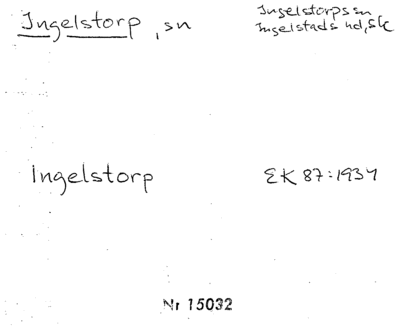 Ingelstorp, sn
Ingelstorps sn
Ingelstads hd, Sk
Ingelstorp
EK 87:1934
Nr 15032